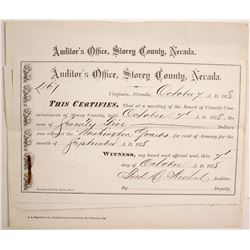 Auditor's Office, Storey County, Nevada.
Auditor's Office, Storey County, Nevada.
Virginia, Nevada, October 7 A. D. 1875
THIS CERTIFIES, That at a meeting of the Board of County Commissioners of Storey County, held October 7th A. D. 1875, the
sum of Seventy Five Dollars
was allowed the Washington Guards for rent of Armory for the
month of September A. D. 1875
WITNESS, my hand and official seal, this 7th
day of October A. D. 1875
Auditor.
By Deputy.